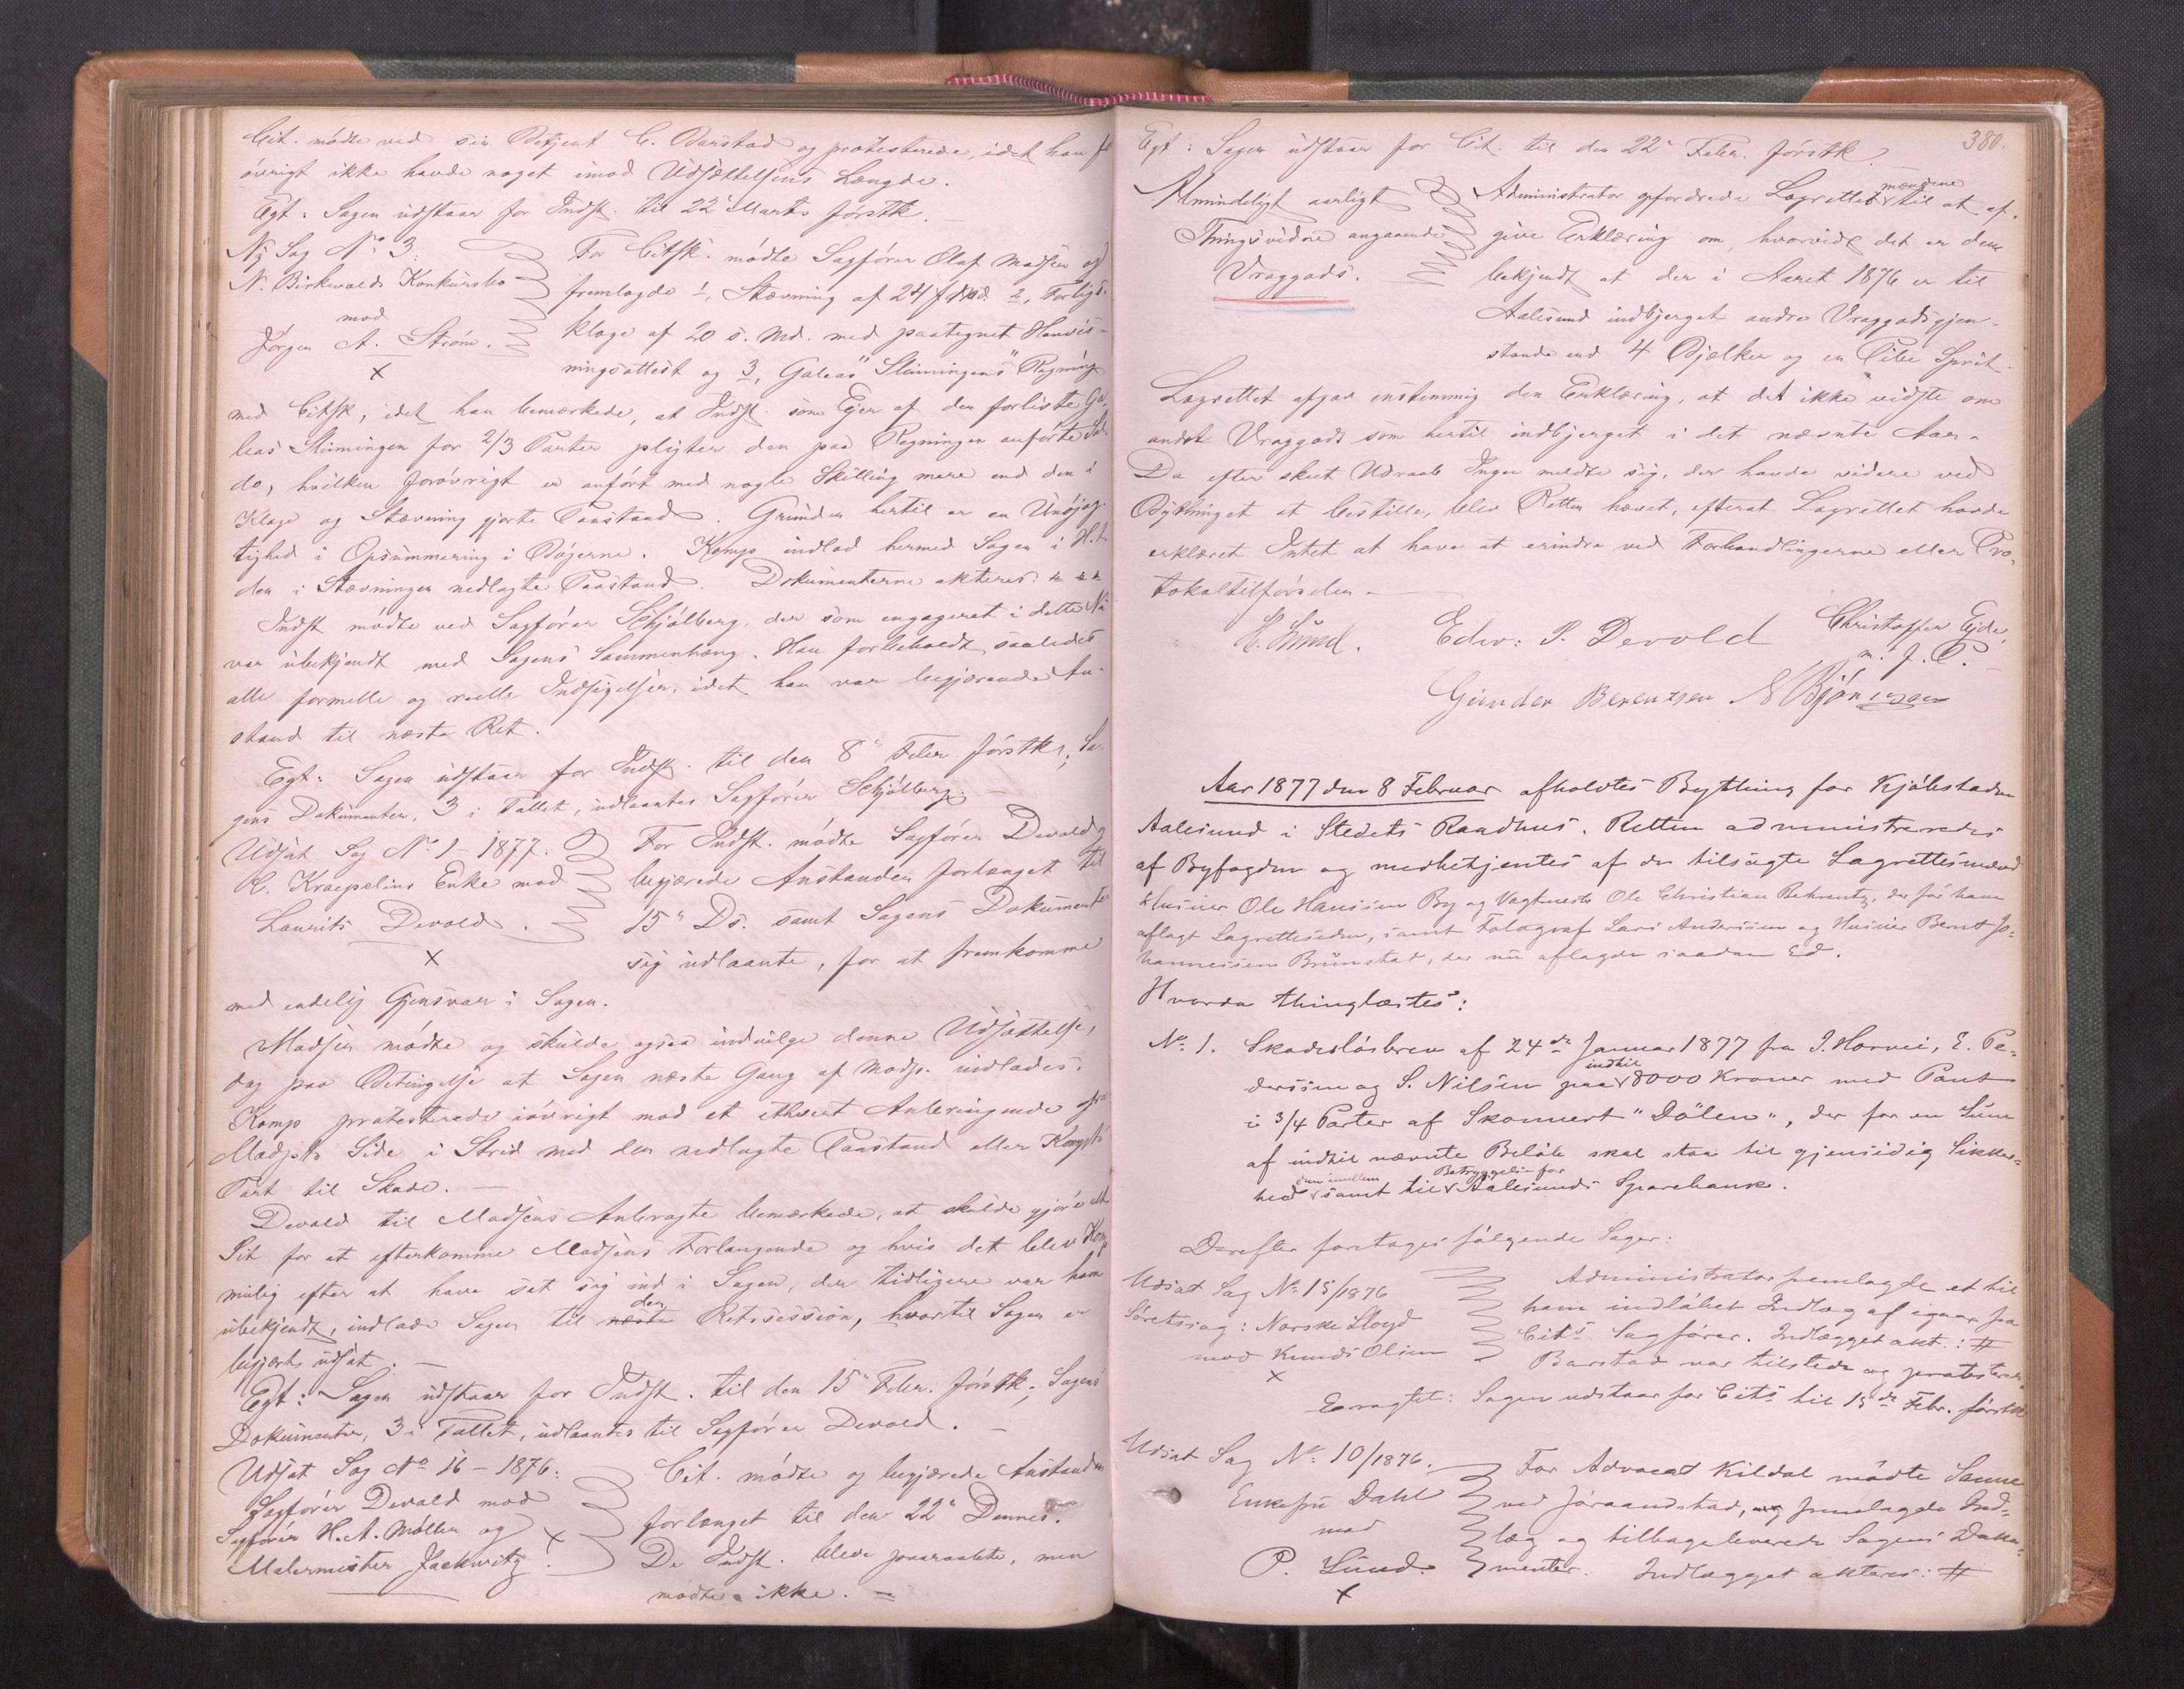 Cit. mødte ved sin Betjent C. Barstad og protesterede, idet han
øvrigt ikke havde noget imod Udsættelsens Længde.
Egt: Sagen udstaar for Indst. til 22 Marts førstk.
Ny Sag No 3:
N. Birkevolds Konkursbo
mod
Jørgen A. Strøm.
x
For Citsk. mødte Sagfører Olaf Madsen og
fremlagde 1, Stævning af 24 2, Forligs-
klage af 20 s. Md. med paategnet Henvis-
ningsattest og 3, Galeas "Slinningens" Regning
med Citsk, idet han bemærkede, at Indst. som Ejer af den forliste Ga-
leas Slinningen for 2/3 Parter pligter den paa Regningen anførte Sal-
do, hvilken forøvrigt er anført med nogle Skilling mere end den i
Klage og Stævning gjorte Paastand. Grunden hertil er en Unøjag-
tighed i Opsummering i Bøgerne. Komp indlod hermed Sagen i H.t.
den i Stævningen nedlagte Paastand. Dokumenterne akteres.
Indst mødte ved Sagfører Schjølberg, der som engageret i dette Nu
var ubekjendt med Sagens Sammenhæng. Han forbeholdt saaledes
alle formelle og reelle Indsigelser, idet han var begjærende An-
stand til næste Ret.
Egt: Sagen udstaar for Indst. til den 8de Febr. førstk; Sa-
gens Dokumenter, 3 i Tallet, udlaantes Sagfører Schjølberg.
Udsat Sag No 1 - 1877:
C. Kraepelins Enke mod
Laurits Devold.
x
For Indst. mødte Sagfører Devold og
begjærede Anstanden forlænget til
15de Ds. samt Sagens Dokumenter
sig udlaante, for at fremkomme
med endelig Gjensvar i Sagen.
Madsen mødte og skulde ogsaa indvilge denne Udsættelse,
dog paa Betingelse at Sagen næste Gang af Modp. indlades.
Komp protesterede iøvrigt mod et ethvert Anbringende fra
Modpts Side i Strid med den nedlagte Paastand eller Kompts
Part til Skade.
Devold til Madsens Anbragte bemærkede, at skulde gjøre alt
Sit for at efterkomme Madsens Forlangende og hvis det blev Komp
mulig efter at have sat sig ind i Sagen, der tidligere var ham
ubekjendt, indlade Sagen til næste den Retssession, hvortil Sagen er
begjært udsat.
Egt: Sagen udstaar for Indst. til den 15de Febr. førstk; Sagens
Dokumenter, 3 i Tallet, udlaantes til Sagfører Devold.
Udsat Sag No 16 - 1876:
Sagfører Devold mod
Sagfører H. A. Møller og
Malermester Jackwitz
x
Cit. mødte og begjærede Anstanden
forlænget til den 22de Dennes.
De Indst. bleve paaraabte, men
mødte ikke.
380.
Egt: Sagen udstaar for Cit. til den 22de Febr. førstk.
Almindeligt aarligt
Thingsvidne angaaende
Vraggods.
Administrator opfordrede Lagrettesmændene til at af-
give Erklæring om, hvorvidt det er dem
bekjendt at der i Aaret 1876 er til
Aalesund indbjerget andre Vraggodsgjen-
stande end 4 Bjælker og en Pibe Sprit.
Lagrettet afgav enstemmig den Erklæring, at det ikke vidste om
andet Vraggods som hertil indbjerget i det nævnte Aar.
Da efter skeet Udraab Ingen meldte sig, der havde videre ved
Bythinget at bestille, blev Retten hævet, efterat Lagrettet havde
erklæret Intet at have at erindre ved Forhandlingerne eller Pro-
tokoltilførselen.
H. Lund. Edv: P. Devold Christoffer Ejde,
m. f. P.
Gunder Berentzen N Bjørnsen
Aar 1877 den 8 Februar afholdtes Bything for Kjøbstaden
Aalesund i Stedets Raadhus. Retten administreredes
af Byfogden og medbetjentes af de tilsagte Lagrettesmænd
Husejer Ole Hanssen By og Vagtmester Ole Christian Behrentz, der før have
aflagt Lagretteseden, samt Fotograf Lars Anderssen og Husejer Bernt Jo-
hannessen Brunstad, der nu aflagde saadan Ed.
Hvorda thinglæstes:
No. 1. Skadesløsbrev af 24de Januar 1877 fra J. Horvei, E. Pe-
derssen og S. Nilsen paa indtil 8000 Kroner med Pant
i 3/4 Parter af Skonnert "Dölen", der for en Sum
af indtil nævnte Beløb skal staa til gjensidig Sikker-
hed dem imellem samt til Betryggelse for Aalesunds Sparebank.
Derefter foretoges følgende Sager:
Udsat Sag No. 15/1876
Søretssag: Norske Lloyd
mod Knud Olsen
x
Administrator fremlagde et til
ham indløbet Indlæg af igaar fra
Cits. Sagfører. Indlægget akt.: #
Barstad var tilstede og protesterede.
Eragtet: Sagen udstaar for Cits til 15de Febr. førstk
Udsat Sag No. 10/1876.
Enkefru Dahl
mod
P. Lund.
x
For Advocat Kildal mødte Sanne
ved Jøraandstad, og fremlagde Ind-
læg og tilbageleverede Sagens Doku-
menter. Indlægget akteres: #